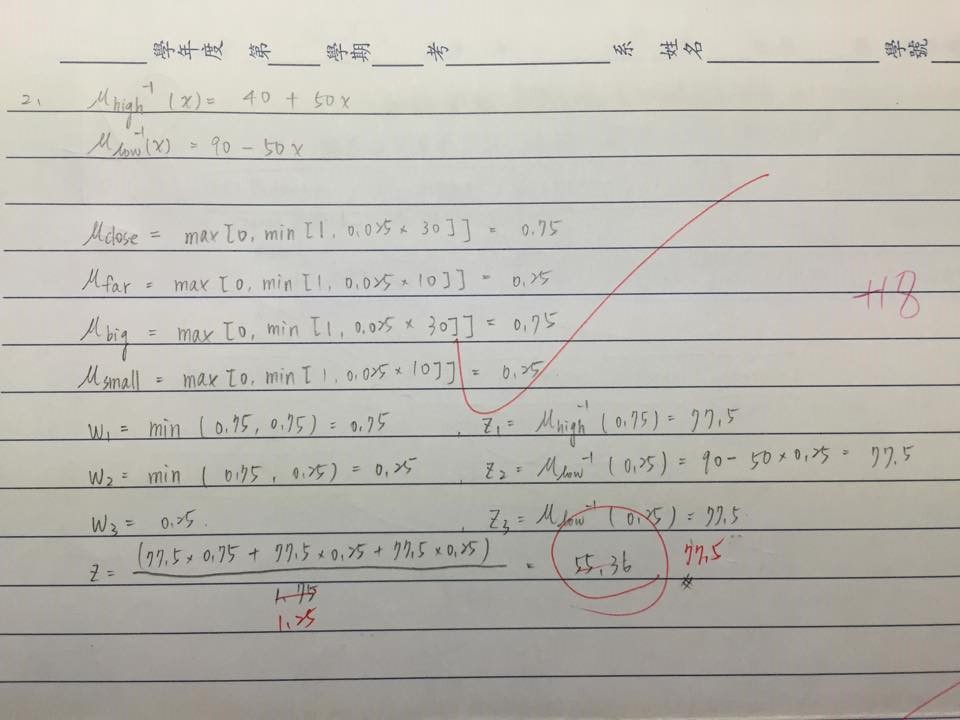 學年度 第 學期 考 系 姓名 學號
2. μhigh⁻¹(x) = 40 + 50x
μlow⁻¹(x) = 90 - 50x
μclose = max[0, min[1, 0.025 × 30]] = 0.75
μfar = max[0, min[1, 0.025 × 10]] = 0.25
+18
μbig = max[0, min[1, 0.025 × 30]] = 0.75
μsmall = max[0, min[1, 0.025 × 10]] = 0.25
W₁ = min (0.75, 0.75) = 0.75 , Z₁ = μhigh⁻¹(0.75) = 77.5
W₂ = min (0.75, 0.25) = 0.25 , Z₂ = μlow⁻¹(0.25) = 90 - 50 × 0.25 = 77.5
W₃ = 0.25 , Z₃ = μlow⁻¹(0.25) = 77.5
(77.5 × 0.75 + 77.5 × 0.25 + 77.5 × 0.25)
Z = = 55.36 77.5
1.75
1.25